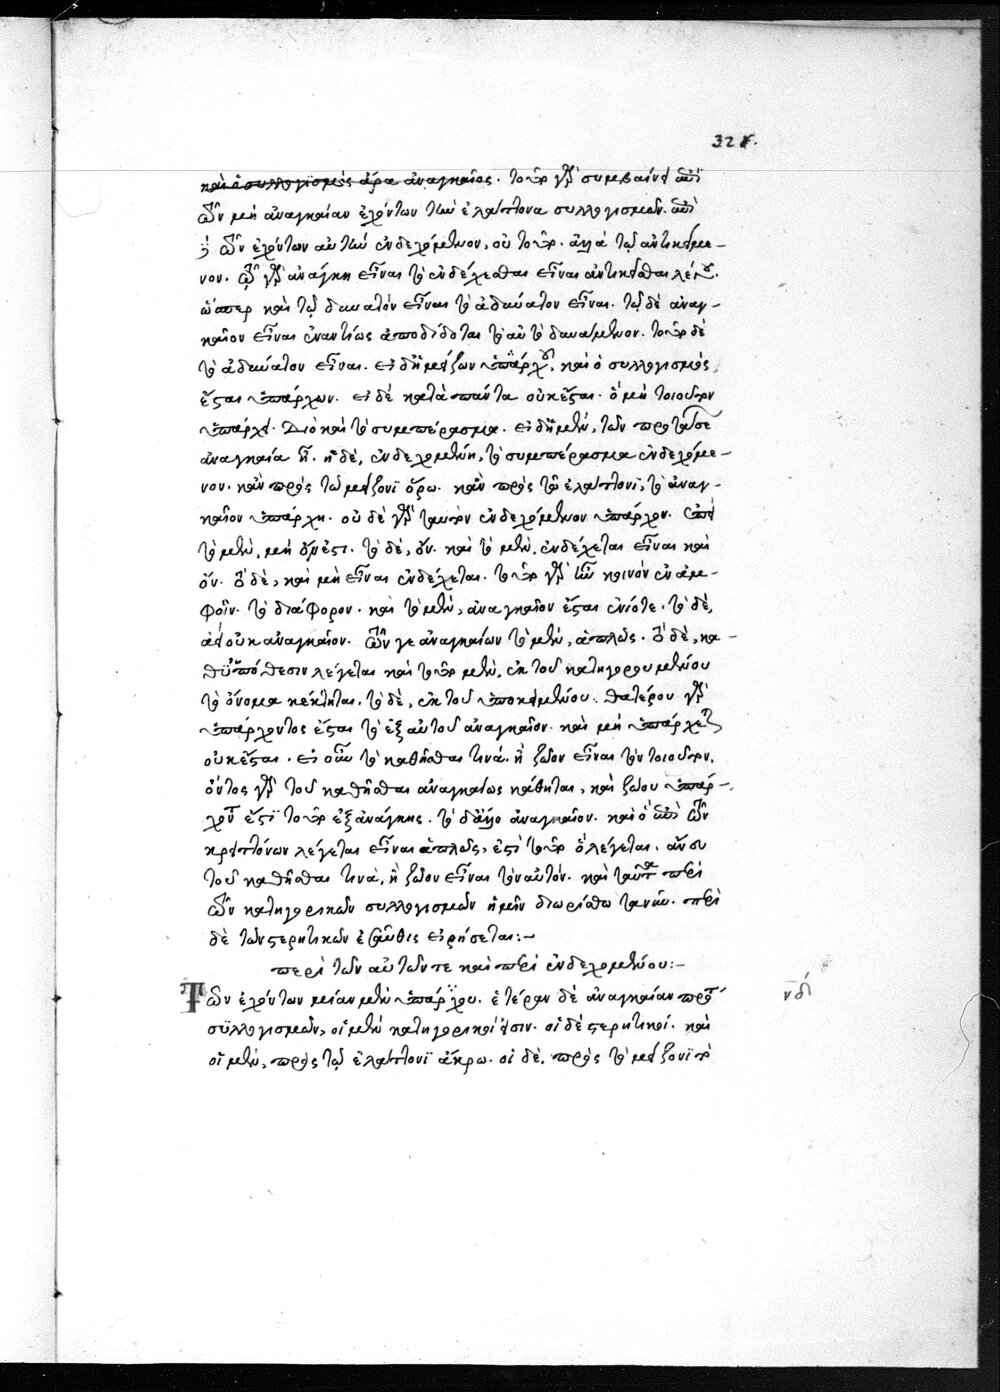 321.
καὶ ὁ συλλογισμὸς ἄρα ἀναγκαῖος. τοῦτο γὰρ συμβαίνει ἐπὶ
τῶν μὴ ἀναγκαίαν ἐχόντων τὴν ἐλάττονα συλλογισμῶν. ἐπὶ
τῶν ἐχόντων αὐτὴν ἐνδεχόμενον, οὐ τοῦτο. ἀλλὰ τῷ ἀντικείμε-
νον. τῷ γὰρ ἀνάγκη εἶναι τὸ ἐνδέχεσθαι εἶναι ἀντικεῖσθαι λέγω.
ὥσπερ καὶ τῷ δυνατὸν εἶναι τὸ ἀδύνατον εἶναι. τῷ δὲ ἀναγ-
καῖον εἶναι ἐναντίως ἀποδίδοται τὸ αὖ τὸ δυνάμενον. τοῦτο δὲ
τὸ ἀδύνατον εἶναι. εἰ δὴ μείζων ὑπάρχου, καὶ ὁ συλλογισμὸς
ἔσται ὑπάρχων. εἰ δὲ κατὰ πάντα οὐκ ἔσται. ὁ μὴ τοιοῦτον
ὑπάρχει. Διὸ καὶ τὸ συμπέρασμα. εἰ δὴ μὲν, τῶν προτάσε
ἀναγκαία ᾖ. ἡ δὲ, ἐνδεχομένη, τὸ συμπέρασμα ἐνδεχόμε-
νον. κἂν πρὸς τῷ μείζονι ὅρω. κἂν πρὸς τῷ ἐλάττονι, τὸ ἀναγ-
καῖον ὑπάρχη. οὐ δὲ γὰρ ταυτὸν ἐνδεχόμενον ὑπάρχον. ἐπεὶ
τὸ μὲν, μὴ ὄν ἐστι. τὸ δὲ, ὄν. καὶ τὸ μὲν, ἐνδέχεται εἶναι καὶ
ὄν. ὃ δὲ, καὶ μὴ εἶναι ἐνδέχεται. τοῦτο γὰρ ἦν κοινὸν ἐν ἀμ-
φοῖν. τὸ διάφορον. καὶ τὸ μὲν, ἀναγκαῖον ἔσται ἐνίοτε. τὸ δὲ,
ἀεὶ οὐκ ἀναγκαῖον. τῶν γε ἀναγκαίων τὸ μὲν, ἁπλῶς. ὃ δὲ, κα-
θ' ὑπόθεσιν λέγεται καὶ τοῦτο μὲν, ἐκ τοῦ κατηγορουμένου
τὸ ὄνομα κέκτηται. τὸ δὲ, ἐκ τοῦ ὑποκειμένου. θατέρου γὰρ
ὑπάρχοντος ἔσται τὸ ἐξ αὐτοῦ ἀναγκαῖον. καὶ μὴ ὑπάρχει
οὐκ ἔσται. εἰ οὖν τὸ καθῆσθαι τινά. ἢ ζῶον εἶναι τὸν τοιοῦτον.
οὗτος γὰρ τοῦ καθῆσθαι ἀναγκαίως κάθηται, καὶ ζώου ὑπάρ-
χον ἔστι τοῦτο ἐξ ἀνάγκης. τὸ δ' ἄλλο ἀναγκαῖον. καὶ ὃ ἐπὶ τῶν
κρειττόνων λέγεται εἶναι ἁπλῶς, ἐστὶ τοῦτο ὃ λέγεται. ἄνευ
τοῦ καθῆσθαι τινὰ, ἢ ζῶον εἶναι τὸν αὐτόν. καὶ ταῦτα περὶ
τῶν κατηγορικῶν συλλογισμῶν ἡμῖν διωρίσθω τανῦν. περὶ
δὲ τῶν στερητικῶν ἐσαῦθις εἰρήσεται:-
περὶ τῶν αὐτῶν τε καὶ περὶ ἐνδεχομένου:-
Τῶν ἐχόντων μίαν μὲν ὑπάρχου. ἑτέραν δὲ ἀναγκαίαν προτ
συλλογισμῶν, οἱ μὲν κατηγορικοί εἰσιν. οἱ δὲ στερητικοί. καὶ
οἱ μὲν, πρὸς τῷ ἐλάττονι ἄκρω. οἱ δὲ, πρὸς τὸ μείζονι τὸ